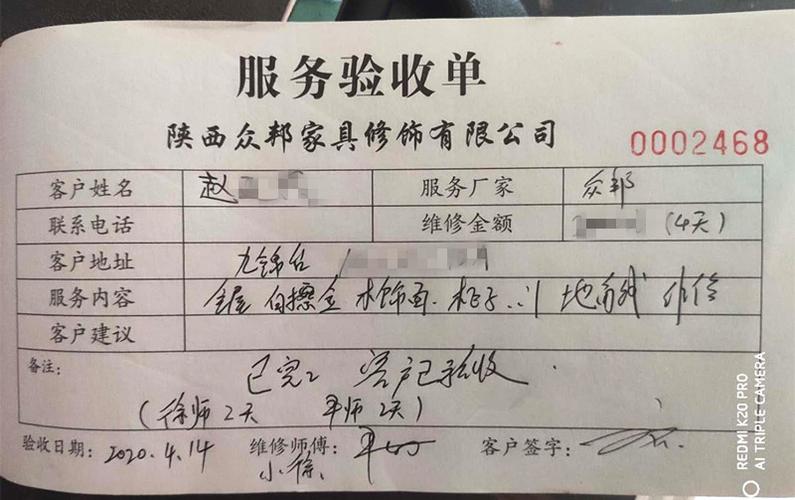 服务验收单
陕西众邦家具修饰有限公司
0002468
客户姓名 赵 服务厂家 众邦
联系电话 维修金额 (4天)
客户地址 九锦台
服务内容 全屋 白擦金 木饰面 柜子 门 地 维修
客户建议
备注: 已完工 客户已验收
(徐师2天 平师2天)
验收日期: 2020.4.14 维修师傅: 客户签字:
小徐
REDMI K20 PRO
AI TRIPLE CAMERA